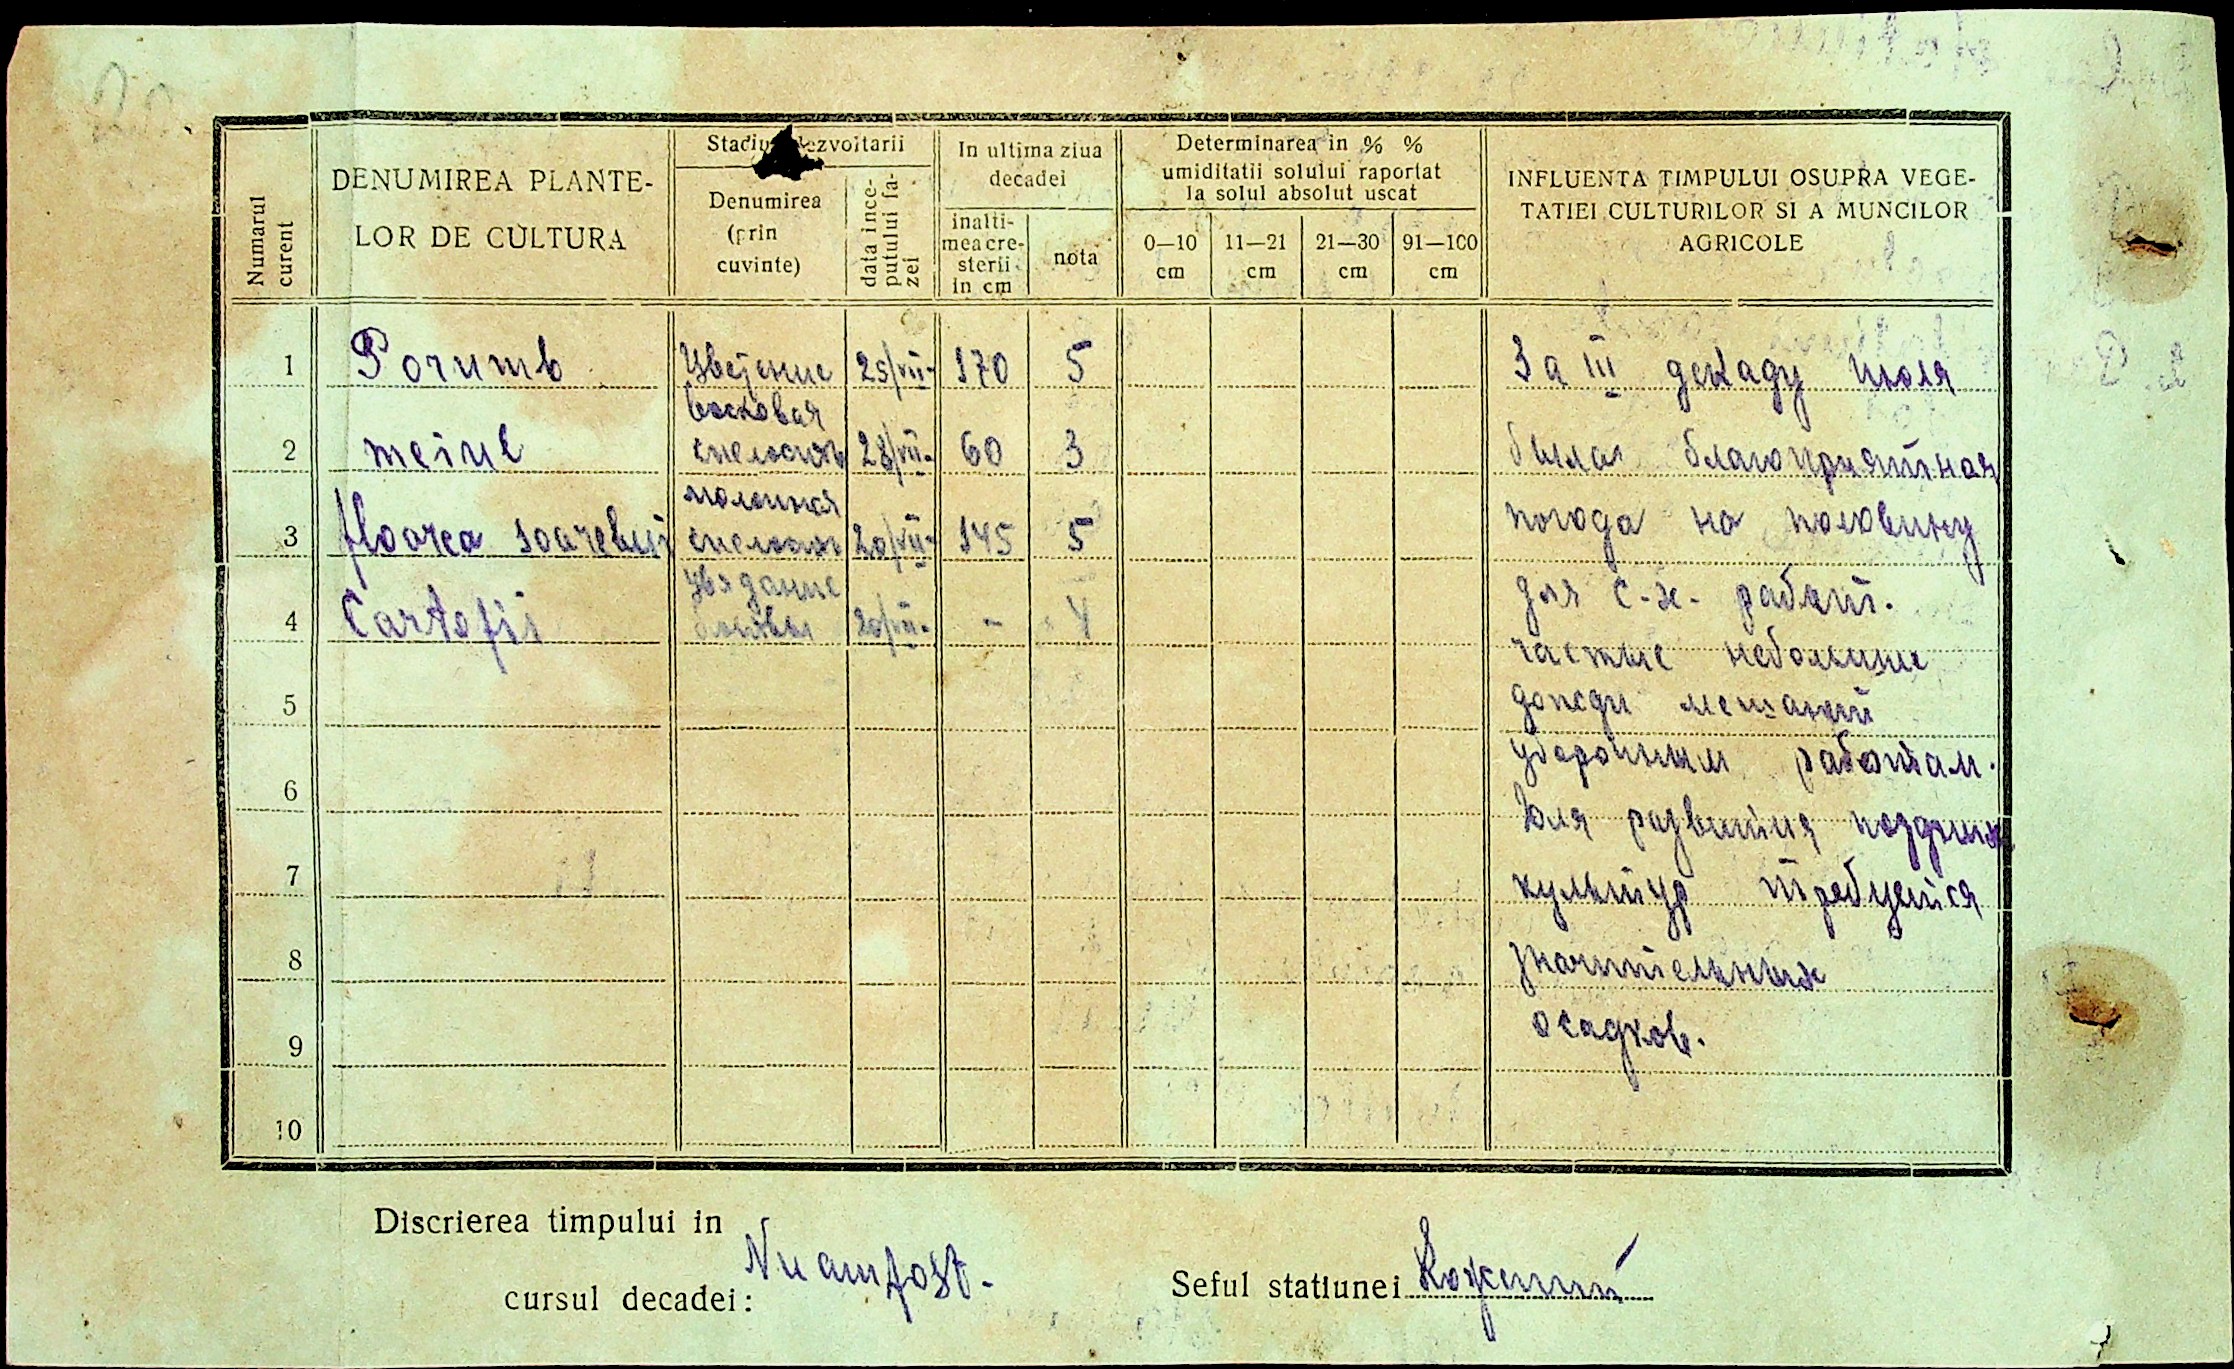 Stadiu dezvoltarii
In ultima ziua
decadei
Determinarea in % %
umiditatii solului raportat
la solul absolut uscat
Numarul
curent
DENUMIREA PLANTE-
LOR DE CULTURA
Denumirea
(prin
cuvinte)
data ince-
putului fa-
zei
inalti-
mea cre-
sterii
in cm
nota
0—10
cm
11—21
cm
21—30
cm
91—100
cm
INFLUENTA TIMPULUI OSUPRA VEGE-
TATIEI CULTURILOR SI A MUNCILOR
AGRICOLE
1 Porumb Цветение 25/VII- 170 5
восковая
2 meiul спелость 28/VII- 60 3
молочная
3 floarea soarelui спелость 20/VII- 145 5
увядание
4 Cartofii ботвы 20/VII- - 4
5
6
7
8
9
10
За III декаду июля
была благоприятная
погода на половину
для с-х- работ.
частые небольшие
дожди мешают
уборочным работам.
Для развития поздних
культур требуется
значительных
осадков.
Discrierea timpului in
cursul decadei: Nu am fost.
Seful statiunei